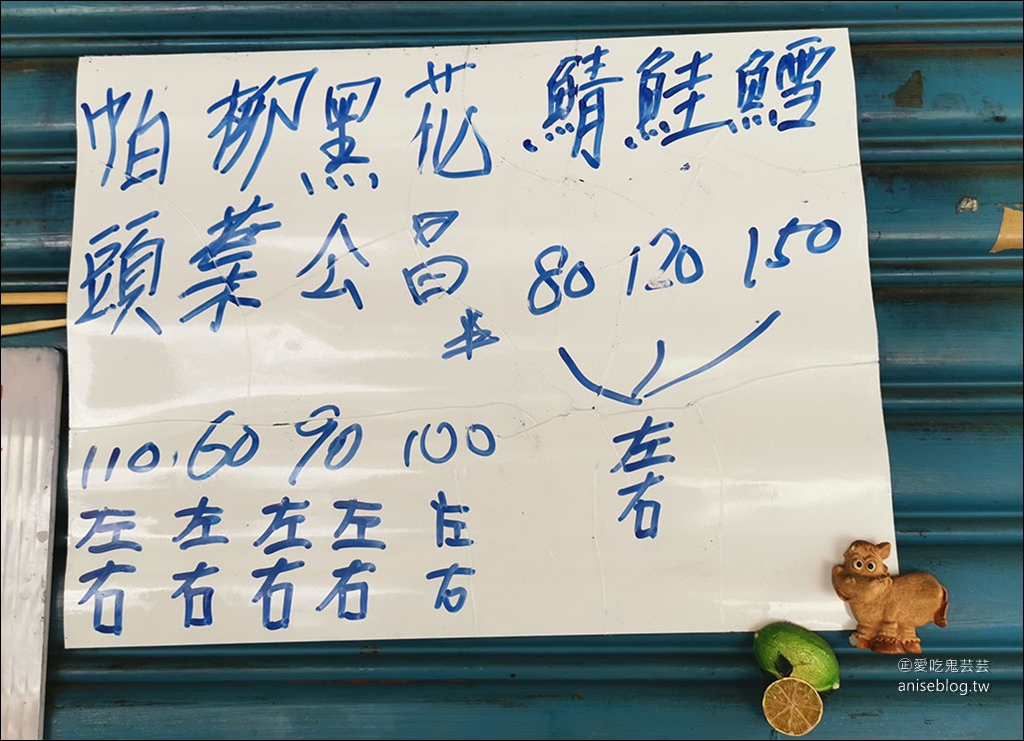 鱈
150
鮭
120
鯖
80
左右
花昌半
100
左右
黑公
90
左右
左右
柳葉
60
左右
帕頭
110
左右
正愛吃鬼芸芸
aniseblog.tw